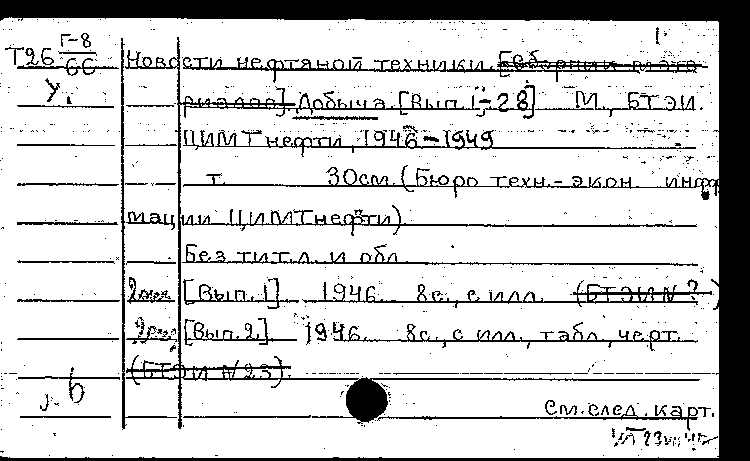 1
Т26 Г-8/66 Новости нефтяной техники. [Сборник мате
У. риалов]. Добыча. [Вып. 1-28] М., БТЭИ.
ЦИМТнефти, 1946-1949
т. 30см. (Бюро техн.-экон. инфор
мации ЦИМТнефти)
Без тит. л. и обл.
[Вып. 1] 1946. 8с., с илл. (БТЭИ № ?)
[Вып. 2.] 1946. 8с., с илл., табл., черт.
(БТЭИ № 23).
б
См. след. карт.